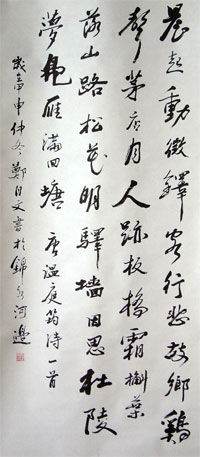 晨起動徵鐸客行悲故鄉鷄
聲茅店月人跡板橋霜槲葉
落山路枳花明驛墻因思杜陵
夢鳧雁滿回塘 唐温庭筠詩一首
歲申仲冬鄭文書於錦水河邊